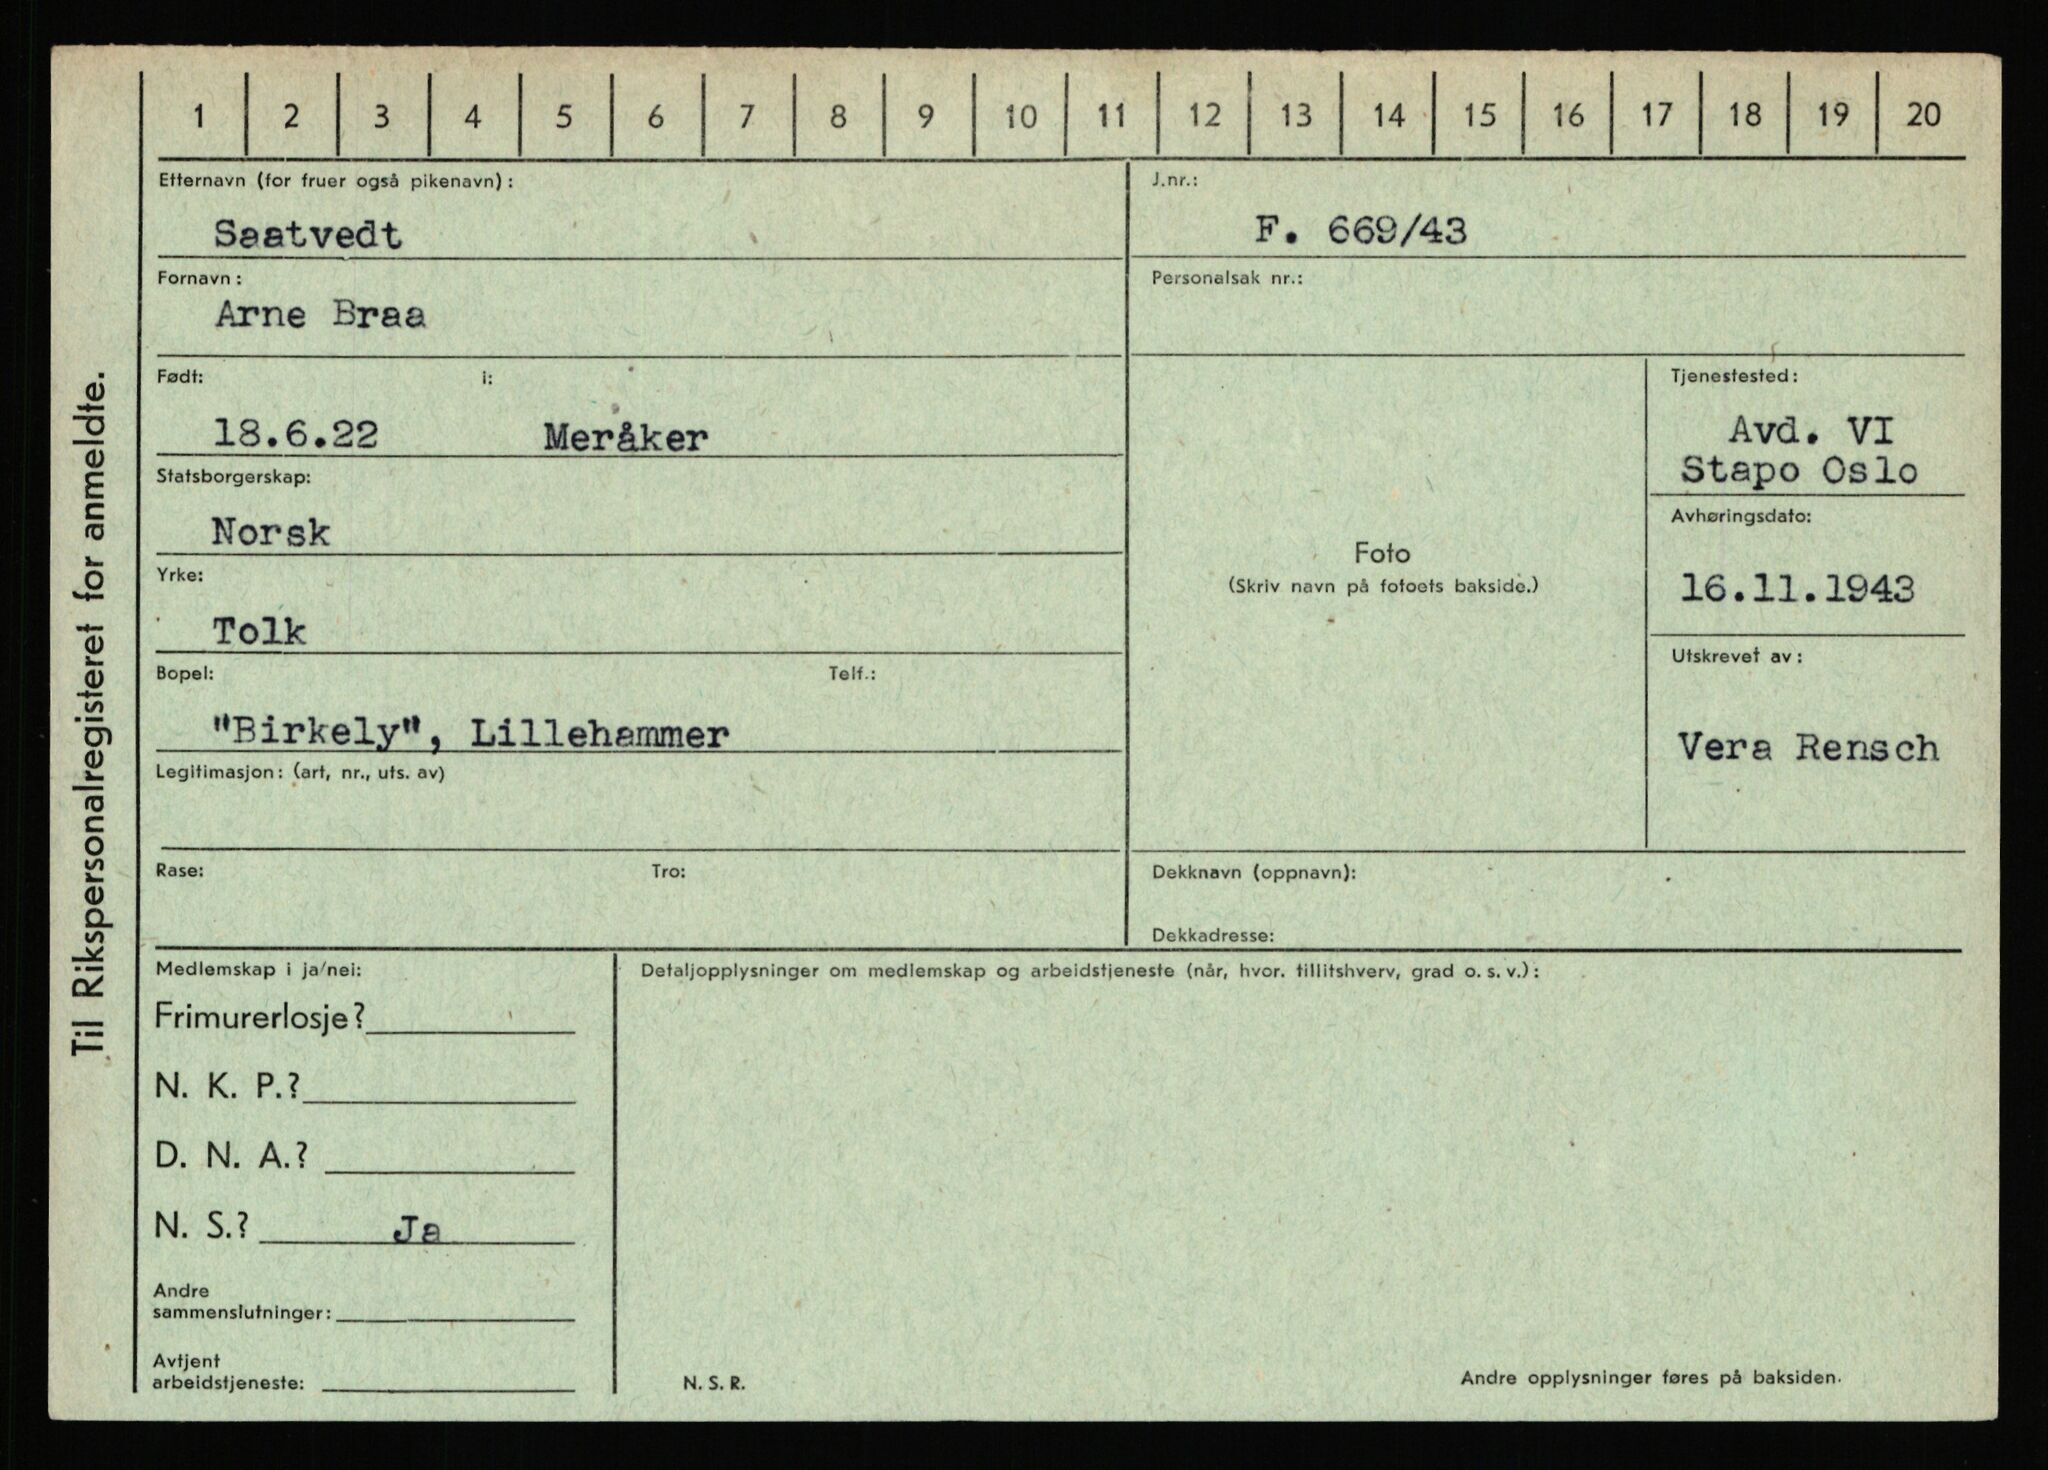 Til Rikspersonalregisteret for anmeldte.
1 2 3 4 5 6 7 8 9 10 11 12 13 14 15 16 17 18 19 20
Etternavn (for fruer også pikenavn):
Saatvedt
J.nr.:
F. 669/43
Fornavn:
Arne Braa
Personalsak nr.:
Født: i:
18.6.22 Meråker
Statsborgerskap:
Norsk
Yrke:
Tolk
Bopel: Telf.:
"Birkely", Lillehammer
Legitimasjon: (art, nr., uts. av)
Rase: Tro:
Foto
(Skriv navn på fotoets bakside.)
Tjenestested:
Avd. VI
Stapo Oslo
Avhøringsdato:
16.11.1943
Utskrevet av:
Vera Rensch
Dekknavn (oppnavn):
Dekkadresse:
Medlemskap i ja/nei:
Frimurerlosje?
N. K. P.?
D. N. A.?
N. S.? Ja
Andre
sammenslutninger:
Avtjent
arbeidstjeneste:
Detaljopplysninger om medlemskap og arbeidstjeneste (når, hvor. tillitshverv, grad o. s. v.):
N. S. R.
Andre opplysninger føres på baksiden.